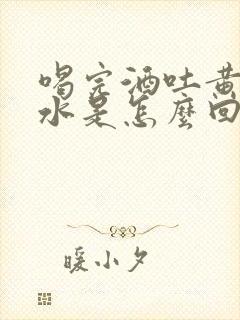 喝完酒吐黄
水是怎麼回
暖小夕